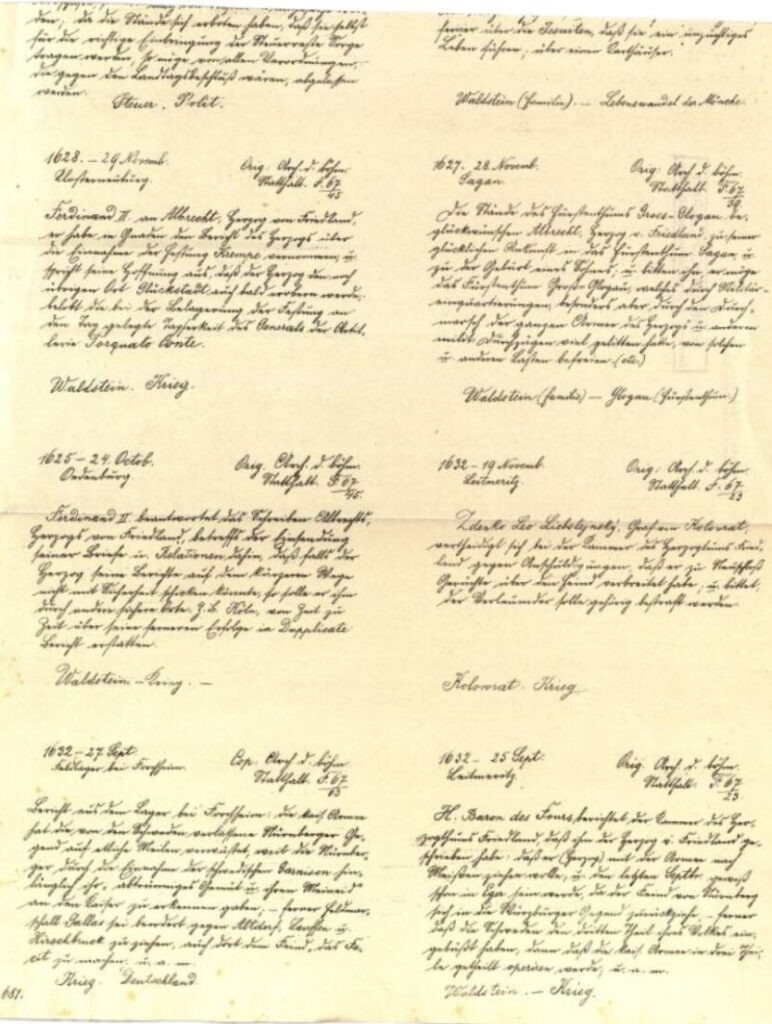 den; da die Stände sich erboten haben, daß sie selbst
für die richtige Einbringung der Steuerreste Sorge
tragen werden, so möge von allen Verordnungen,
die gegen den Landtagsbeschluß wären, abgelassen
werden.
Steuer. Polit.
1628. – 29 Novemb.
Klosterneuburg
Orig: Arch. d. böhm.
Statthalt. F. 67
45
Ferdinand II. an Albrecht, Herzog von Friedland,
er habe in Gnaden den Bericht des Herzogs über
die Einnahme der Festung Krempe vernommen, u.
spricht seine Hoffnung aus, daß der Herzog den noch
übrigen Ort Glückstadt auch bald erobern werde;
belobt die bei der Belagerung der Festung an
den Tag gelegte Tapferkeit des Generals der Artil-
lerie Torquato Conte.
Waldstein. Krieg.
1625 – 24. Octob.
Oedenburg
Orig. Arch. d. böhm.
Statthalt. F. 67
45.
Ferdinand II. beantwortet das Schreiben Albrechts,
Herzogs von Friedland, betreffs der Einsendung
seiner Briefe u. Relationen dahin, daß falls der
Herzog seine Berichte auf dem kürzeren Wege
nicht mit Sicherheit schicken könnte, so solle er ihm
durch andere sichere Orte, z. B. Köln, von Zeit zu
Zeit über seine ferneren Erfolge in Dupplicate
Bericht erstatten.
Waldstein – Krieg. –
1632 – 27 Sept.
Feldlager bei Forchheim.
Cop: Arch d. böhm
Statthalt. F. 67
Bericht aus dem Lager bei Forchheim: die kais. Armee
hat die von den Schweden verlassene Nürnberger Ge-
gend auf etliche Meilen verwüstet, weil die Nürnber-
ger durch die Einnahme der schwedischen Garnison hin-
länglich ihr abtrünniges Gemüt u. ihren Meineid
an den Kaiser zu erkennen gaben, – ferner Feldmar-
schall Gallas sei beordert gegen Altdorf, Lauffen u.
Hirschbruck zu ziehen, auch dort dem Feind, das Fa-
cit zu machen, u. a. m.
Krieg. Deutschland.
681.
ferner über die Jesuiten, daß sie ein unzüchtiges
Leben führen; über einen Carthäuser.
Waldstein (Familie). – Lebenswandel der Mönche.
1627. 28. Novemb.
Sagan
Orig: Arch d. böhm.
Statthalt. F. 67
39
Die Stände des Fürstenthums Gross-Glogau be-
glückwünschen Albrecht, Herzog v. Friedland zu seiner
glücklichen Ankunft in das Fürstenthum Sagan, u.
zu der Geburt eines Sohnes, u. bitten ihn, er möge
das Fürstenthum Gross-Glogau, welches durch Militär-
einquartierungen, besonders aber durch den Durch-
marsch der ganzen Armee des Herzogs u. anderen
milit. Durchzügen viel gelitten habe, von solchen
u. anderen Lasten befreien. (etc.)
Waldstein (Familie) – Glogau (Fürstenthum)
1632 – 19 Novemb.
Leitmeritz
Orig: Arch. d. böhm.
Statthalt. F. 67
23
Zdenko Leo Liebsteynský, Graf von Kolowrat,
vertheidigt sich bei der Kammer des Herzogtums Fried-
land gegen Anschuldigungen, daß er zu Raudnitz
Gerüchte über den Feind verbreitet habe, u. bittet,
der Verleumder solle gehörig bestraft werden.
Kolowrat – Krieg
1632 – 25 Sept.
Leitmeritz
Orig. Arch d. böhm
Statthalt. F. 67
23
H. Baron des Fours, berichtet der Kammer des Her-
zogthums Friedland daß ihm der Herzog v. Friedland ge-
schrieben habe: daß er (Herzog) mit der Armee nach
Meißen ziehen wolle, u. den letzten Septbr gewiß
schon in Eger sein werde, da der Feind von Nürnberg
sich in die Würzburger Gegend zurückziehe, – ferner
daß die Schweden den dritten Theil ihres Volkes ein-
gebüßt haben, dann daß die kais. Armee in drei Thei-
le getheilt operiren werde, u. a. m.
Waldstein. – Krieg.